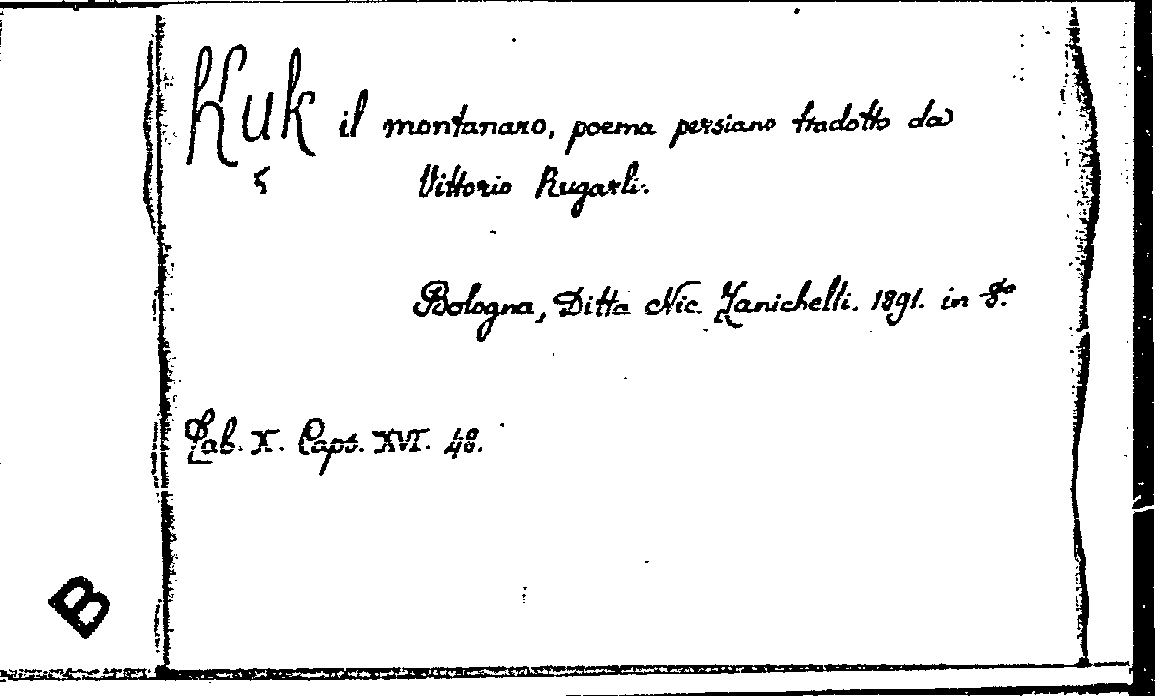 Kuk il montanaro, poema persiano tradotto da
Vittorio Rugarli.
Bologna, Ditta Nic. Zanichelli. 1891. in 8.º
Tab. X. Caps. XVI. 48.
B